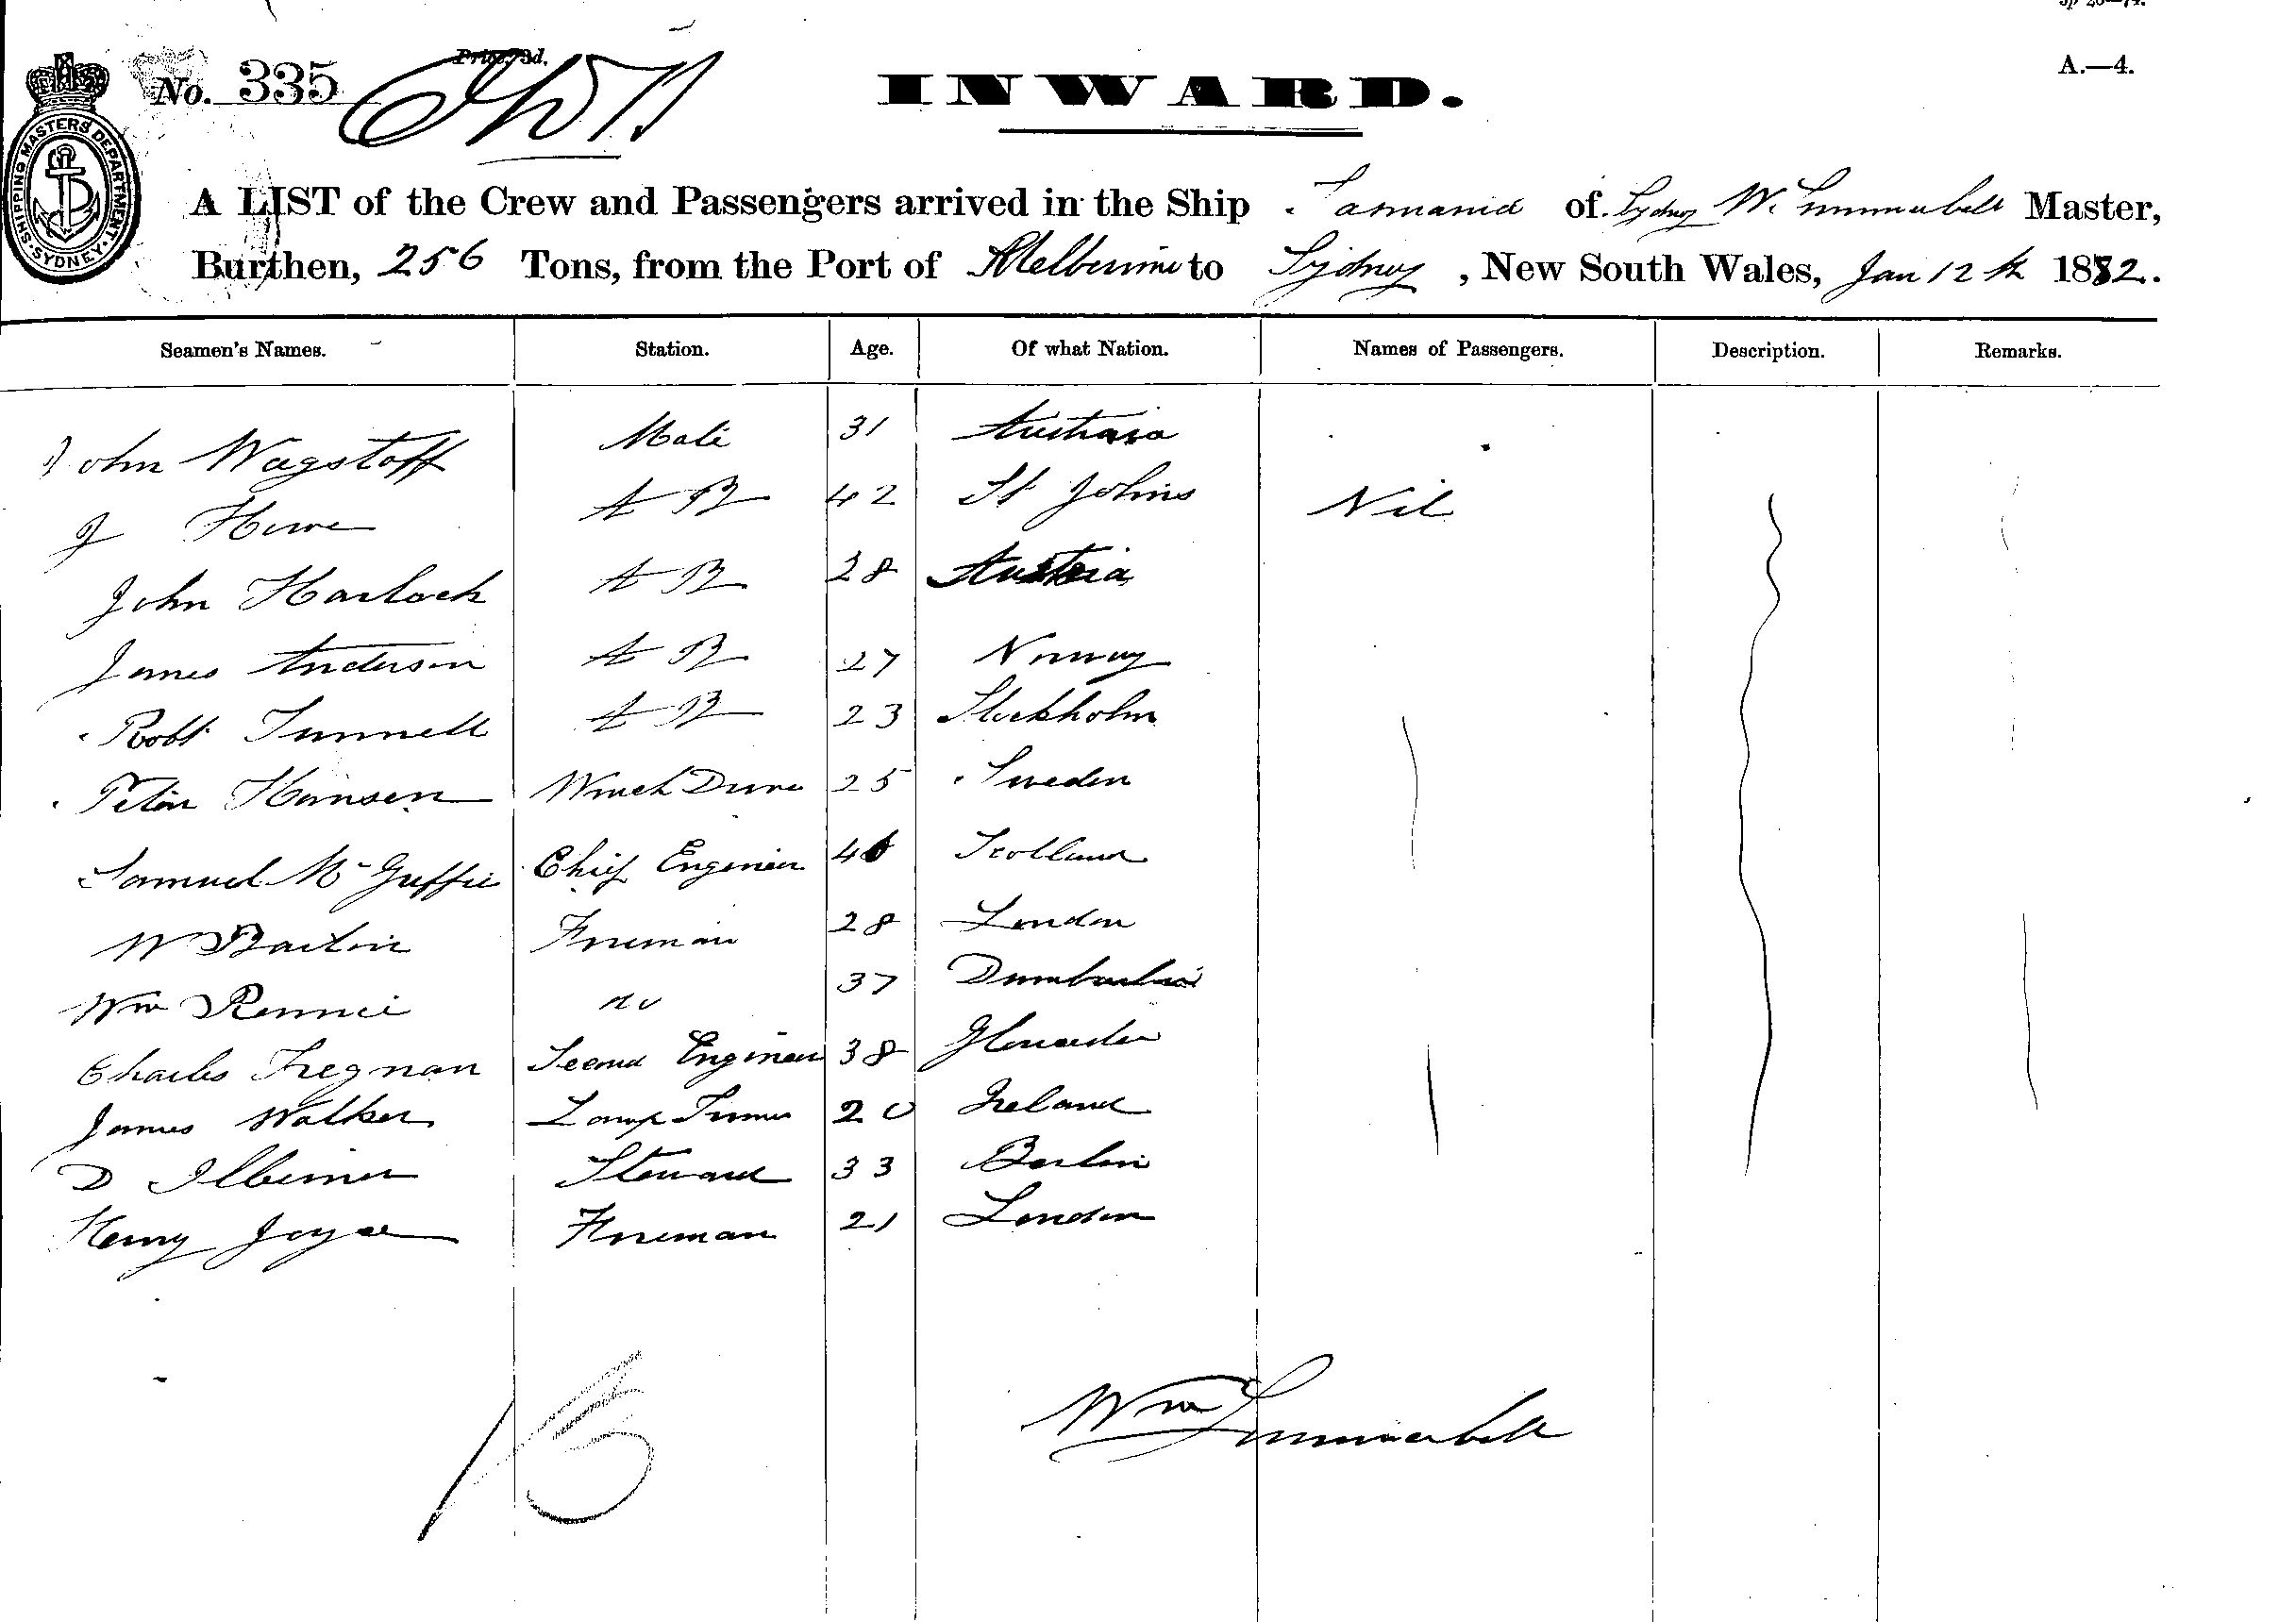 No. 335
Price, 3d.
INWARD.
A.—4.
SHIPPING MASTERS DEPARTMENT. SYDNEY.
A LIST of the Crew and Passengers arrived in the Ship Tasmania of Sydney W. Summerbell Master,
Burthen, 256 Tons, from the Port of Melbourne to Sydney, New South Wales, Jan 12th 1882.
Seamen's Names. Station. Age. Of what Nation. Names of Passengers. Description. Remarks.
John Wagstaff Mate 31
J A B 42 St Johns Nil
John Harlock A B 28 Austria
James Anderson A B 27 Norway
Robt Tunnell A B 23 Stockholm
Peter Hansen Winch Driver 25 Sweden
Samuel McGuffie Chief Engineer Scotland
W Fireman 28 London
Wm Rennie do 37
Charles Tregnan Second Engineer 38 Gloucester
James Walker Lamp Trimmer 20 Ireland
D Steward 33 Berlin
Henry Joyce Fireman 21 London
Wm Summerbell